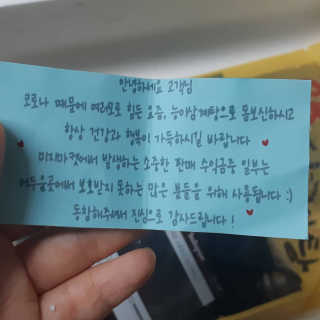 안녕하세요 고객님
코로나 때문에 여러모로 힘든 요즘, 능이삼계탕으로 몸보신하시고
항상 건강과 행복이 가득하시길 바랍니다
미지마켓에서 발생하는 소중한 판매 수익금중 일부는
어두운곳에서 보호받지 못하는 많은 분들을 위해 사용됩니다 :)
동참해주셔서 진심으로 감사드립니다!